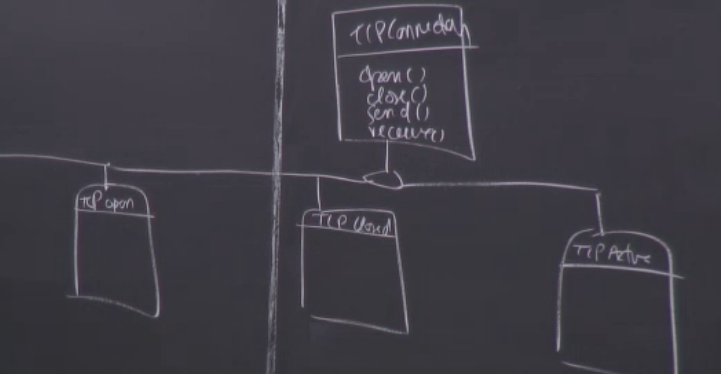 TCPConnection
open()
close()
send()
receive()
TCP open
TCP closed
TCP Active